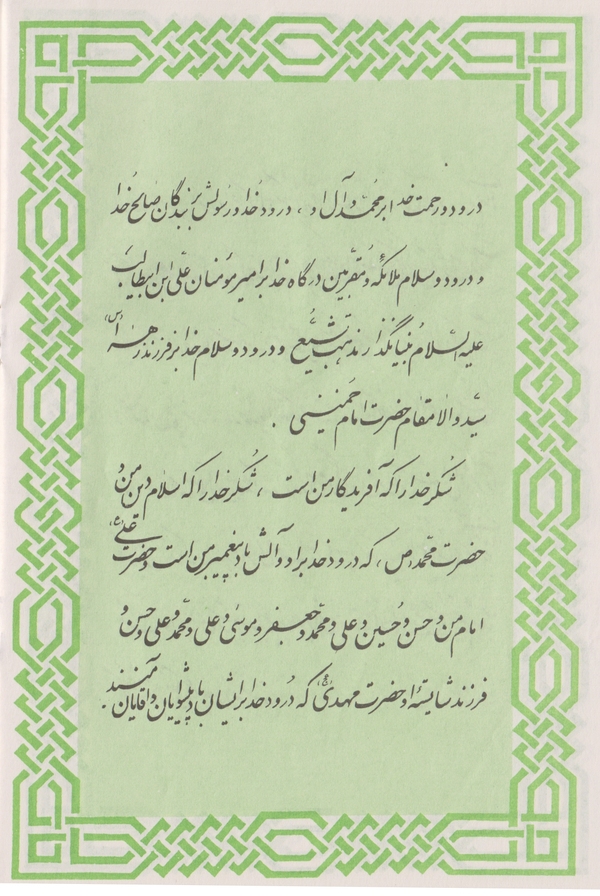 درود و رحمت خدا بر محمد و آل او ، درود خدا و رسولش بر بندگان صالح خدا
و درود و سلام ملائکه و مقربین درگاه خدا بر امیر مؤمنان علی ابن ابیطالب
علیه السلام بنیانگذار مذهب تشیع و درود و سلام خدا بر فرزند زهرا (س)
سید والامقام حضرت امام خمینی .
شکر خدا را که آفریدگار من است ، شکر خدا را که اسلام دین من و
حضرت محمد (ص) ، که درود خدا بر او و آلش باد پیغمبر من است و حضرت علی (ع)
امام من و حسن و حسین و علی و محمد و جعفر و موسی و علی و محمد و علی و حسن و
فرزند شایسته او حضرت مهدی (عج) که درود خدا بر ایشان باد پیشوایان و آقایان منند .